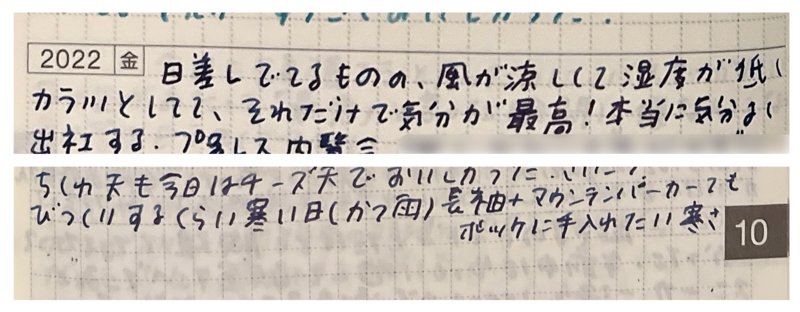 2022 金
日差しでてるものの、風が涼しくて湿度が低く
カラッとしてて、それだけで気分が最高!本当に気分よく
出社する. プレス内覧会
ちくわ天も今日はチーズ天でおいしかった
びっくりするくらい寒い日(かつ雨) 長袖+マウンテンパーカーでも
ポッケに手入れたい寒さ
10